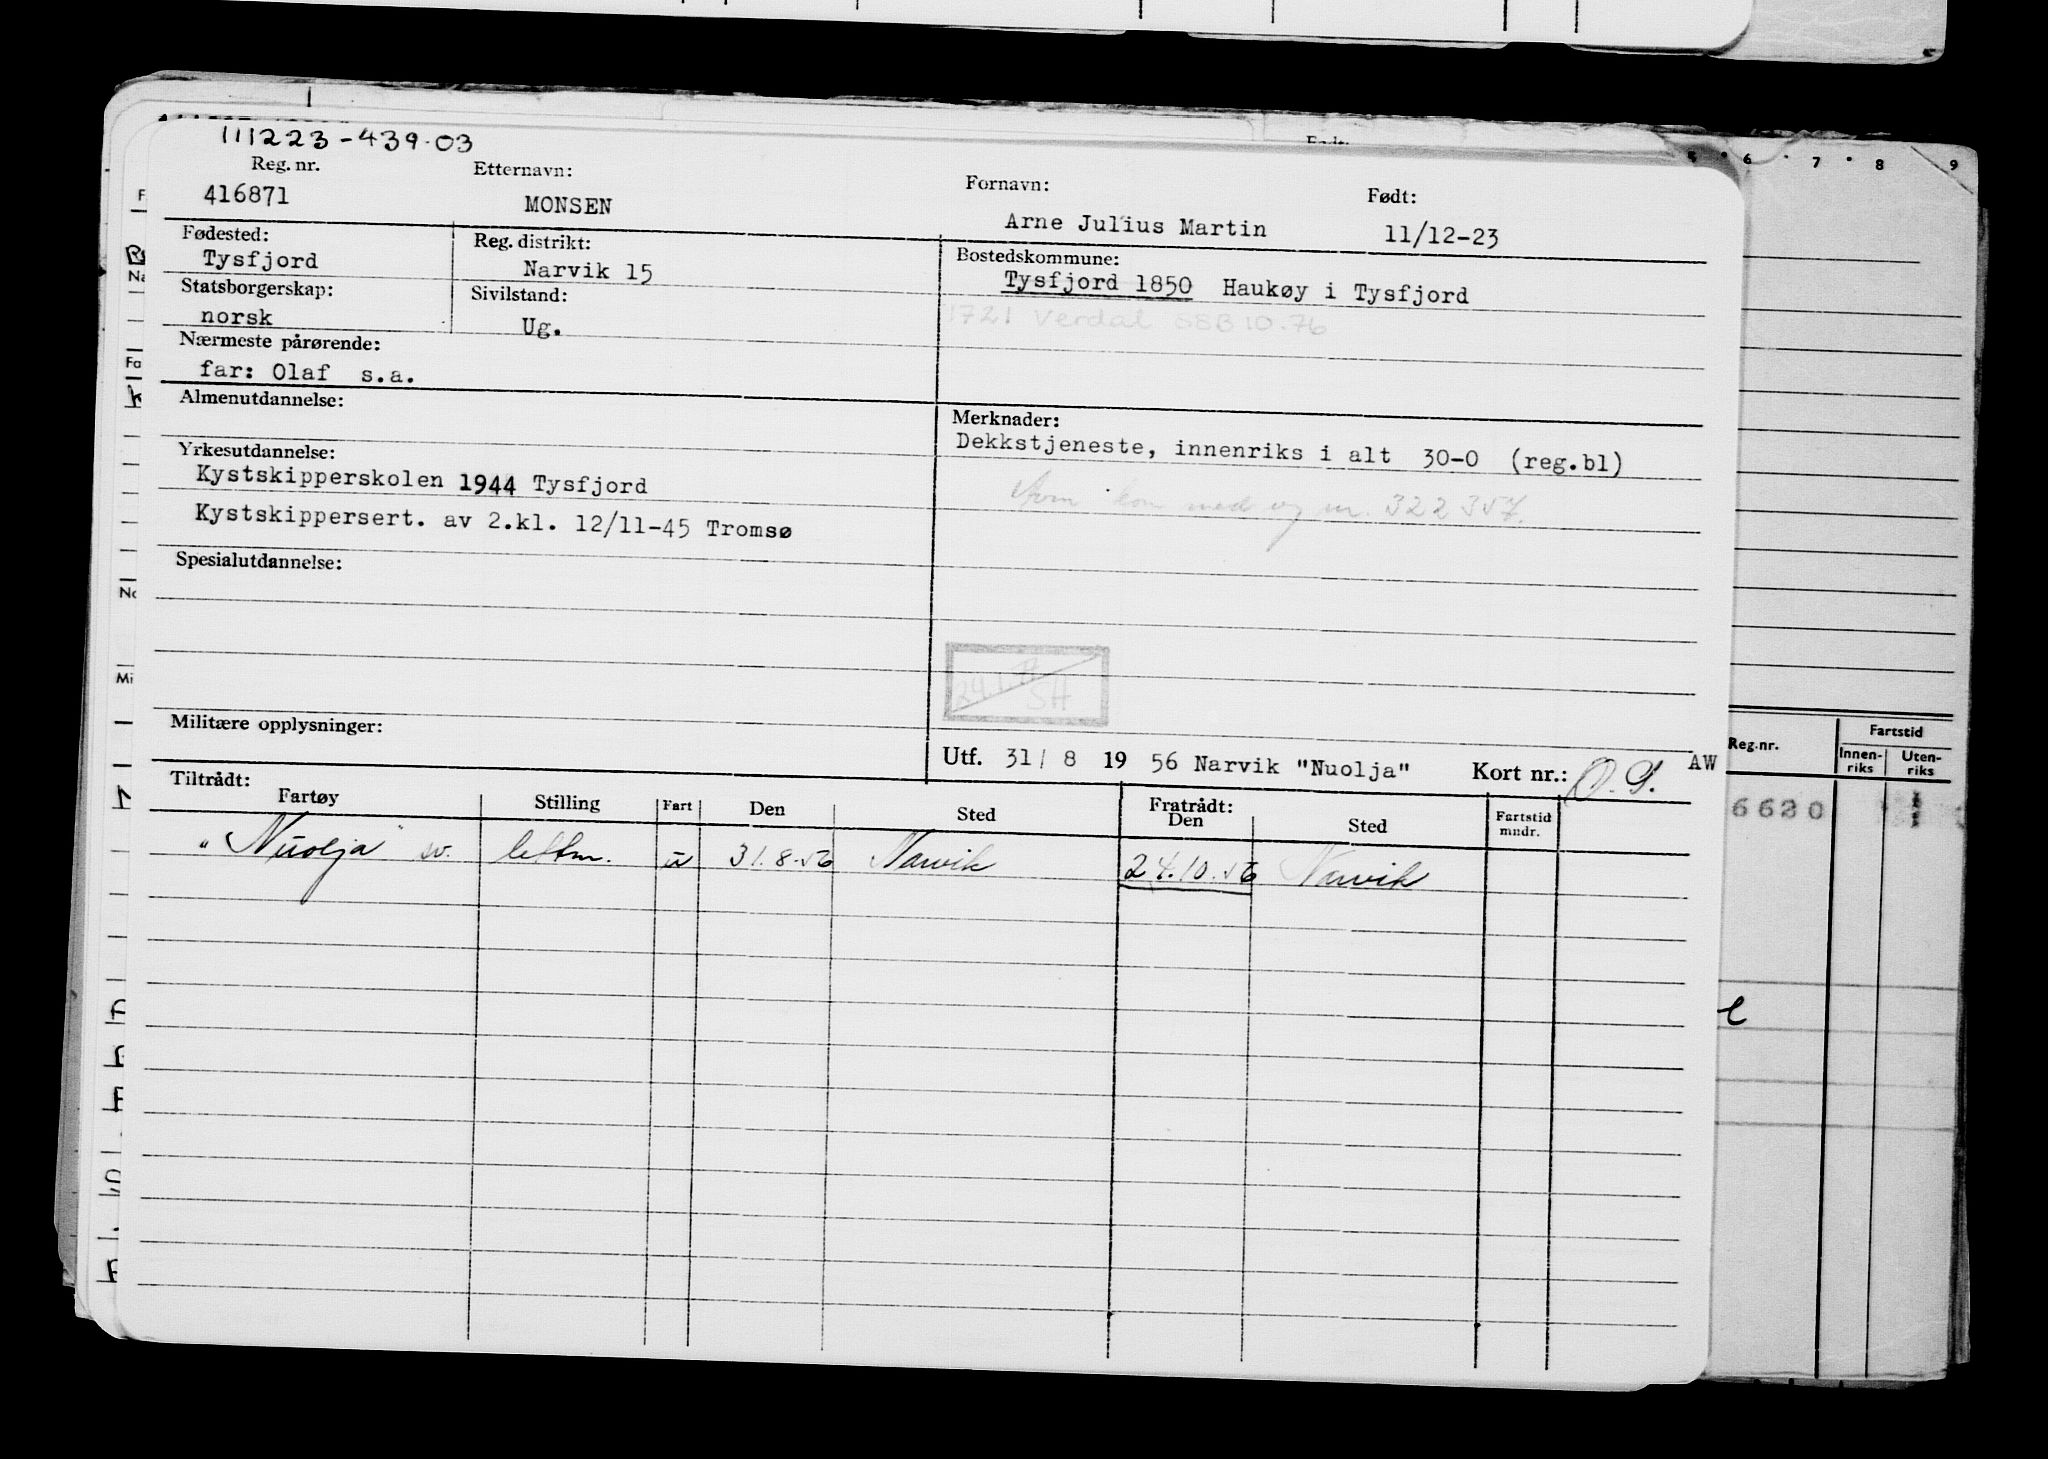 111223-439.03
Reg. nr. Etternavn: Fornavn: Født:
416871 MONSEN Arne Julius Martin 11/12-23
Fødested: Reg. distrikt: Bostedskommune:
Tysfjord Narvik 15 Tysfjord 1850 Haukøy i Tysfjord
Statsborgerskap: Sivilstand: 1721 Verdal 08B10.76
norsk Ug.
Nærmeste pårørende:
far: Olaf s.a.
Almenutdannelse: Merknader:
Dekkstjeneste, innenriks i alt 30-0 (reg.bl)
Yrkesutdannelse:
Kystskipperskolen 1944 Tysfjord
kom med og nr. 322357.
Kystskippersert. av 2.kl. 12/11-45 Tromsø
Spesialutdannelse:
SH
Militære opplysninger:
Utf. 31/ 8 19 56 Narvik "Nuolja" Kort nr.: AW
Tiltrådt: Fratrådt:
Fartøy Stilling Fart Den Sted Den Sted Fartstid mndr.
"Nuolja" sv. lettm. u 31.8.56 Narvik 24.10.56 Narvik
5 6 7 8 9
Reg.nr. Fartstid
Innen-riks Uten-riks
6620